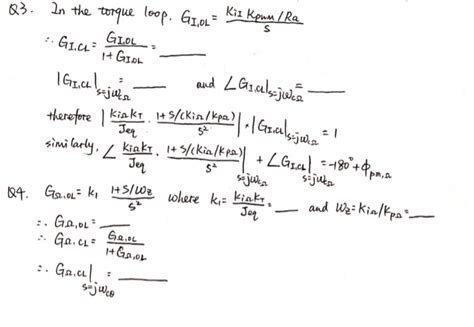 Q3. In the torque loop. G_{I,OL} = \frac{K_{iI} K_{pwm} / R_a}{s}
∴ G_{I,CL} = \frac{G_{I,OL}}{1 + G_{I,OL}} = ____
|G_{I,CL}|_{s=jω_{cΩ}} = ____ and ∠G_{I,CL}|_{s=jω_{cΩ}} = ____
therefore |\frac{k_{iΩ} k_T}{J_{eq}} · \frac{1 + s/(k_{iΩ}/k_{pΩ})}{s^2}| · |G_{I,CL}|_{s=jω_{cΩ}} = 1
similarly, ∠ \frac{k_{iΩ} k_T}{J_{eq}} · \frac{1 + s/(k_{iΩ}/k_{pΩ})}{s^2}|_{s=jω_{cΩ}} + ∠G_{I,CL}|_{s=jω_{cΩ}} = -180° + Φ_{pm,Ω}
Q4. G_{Ω,OL} = k_1 \frac{1 + s/ω_z}{s^2} where k_1 = \frac{k_{iΩ} k_T}{J_{eq}} = ____ and ω_z = k_{iΩ}/k_{pΩ} = ____
∴ G_{Ω,OL} = ____
∴ G_{Ω,CL} = \frac{G_{Ω,OL}}{1 + G_{Ω,OL}}
∴ G_{Ω,CL}|_{s=jω_{cθ}} = ____